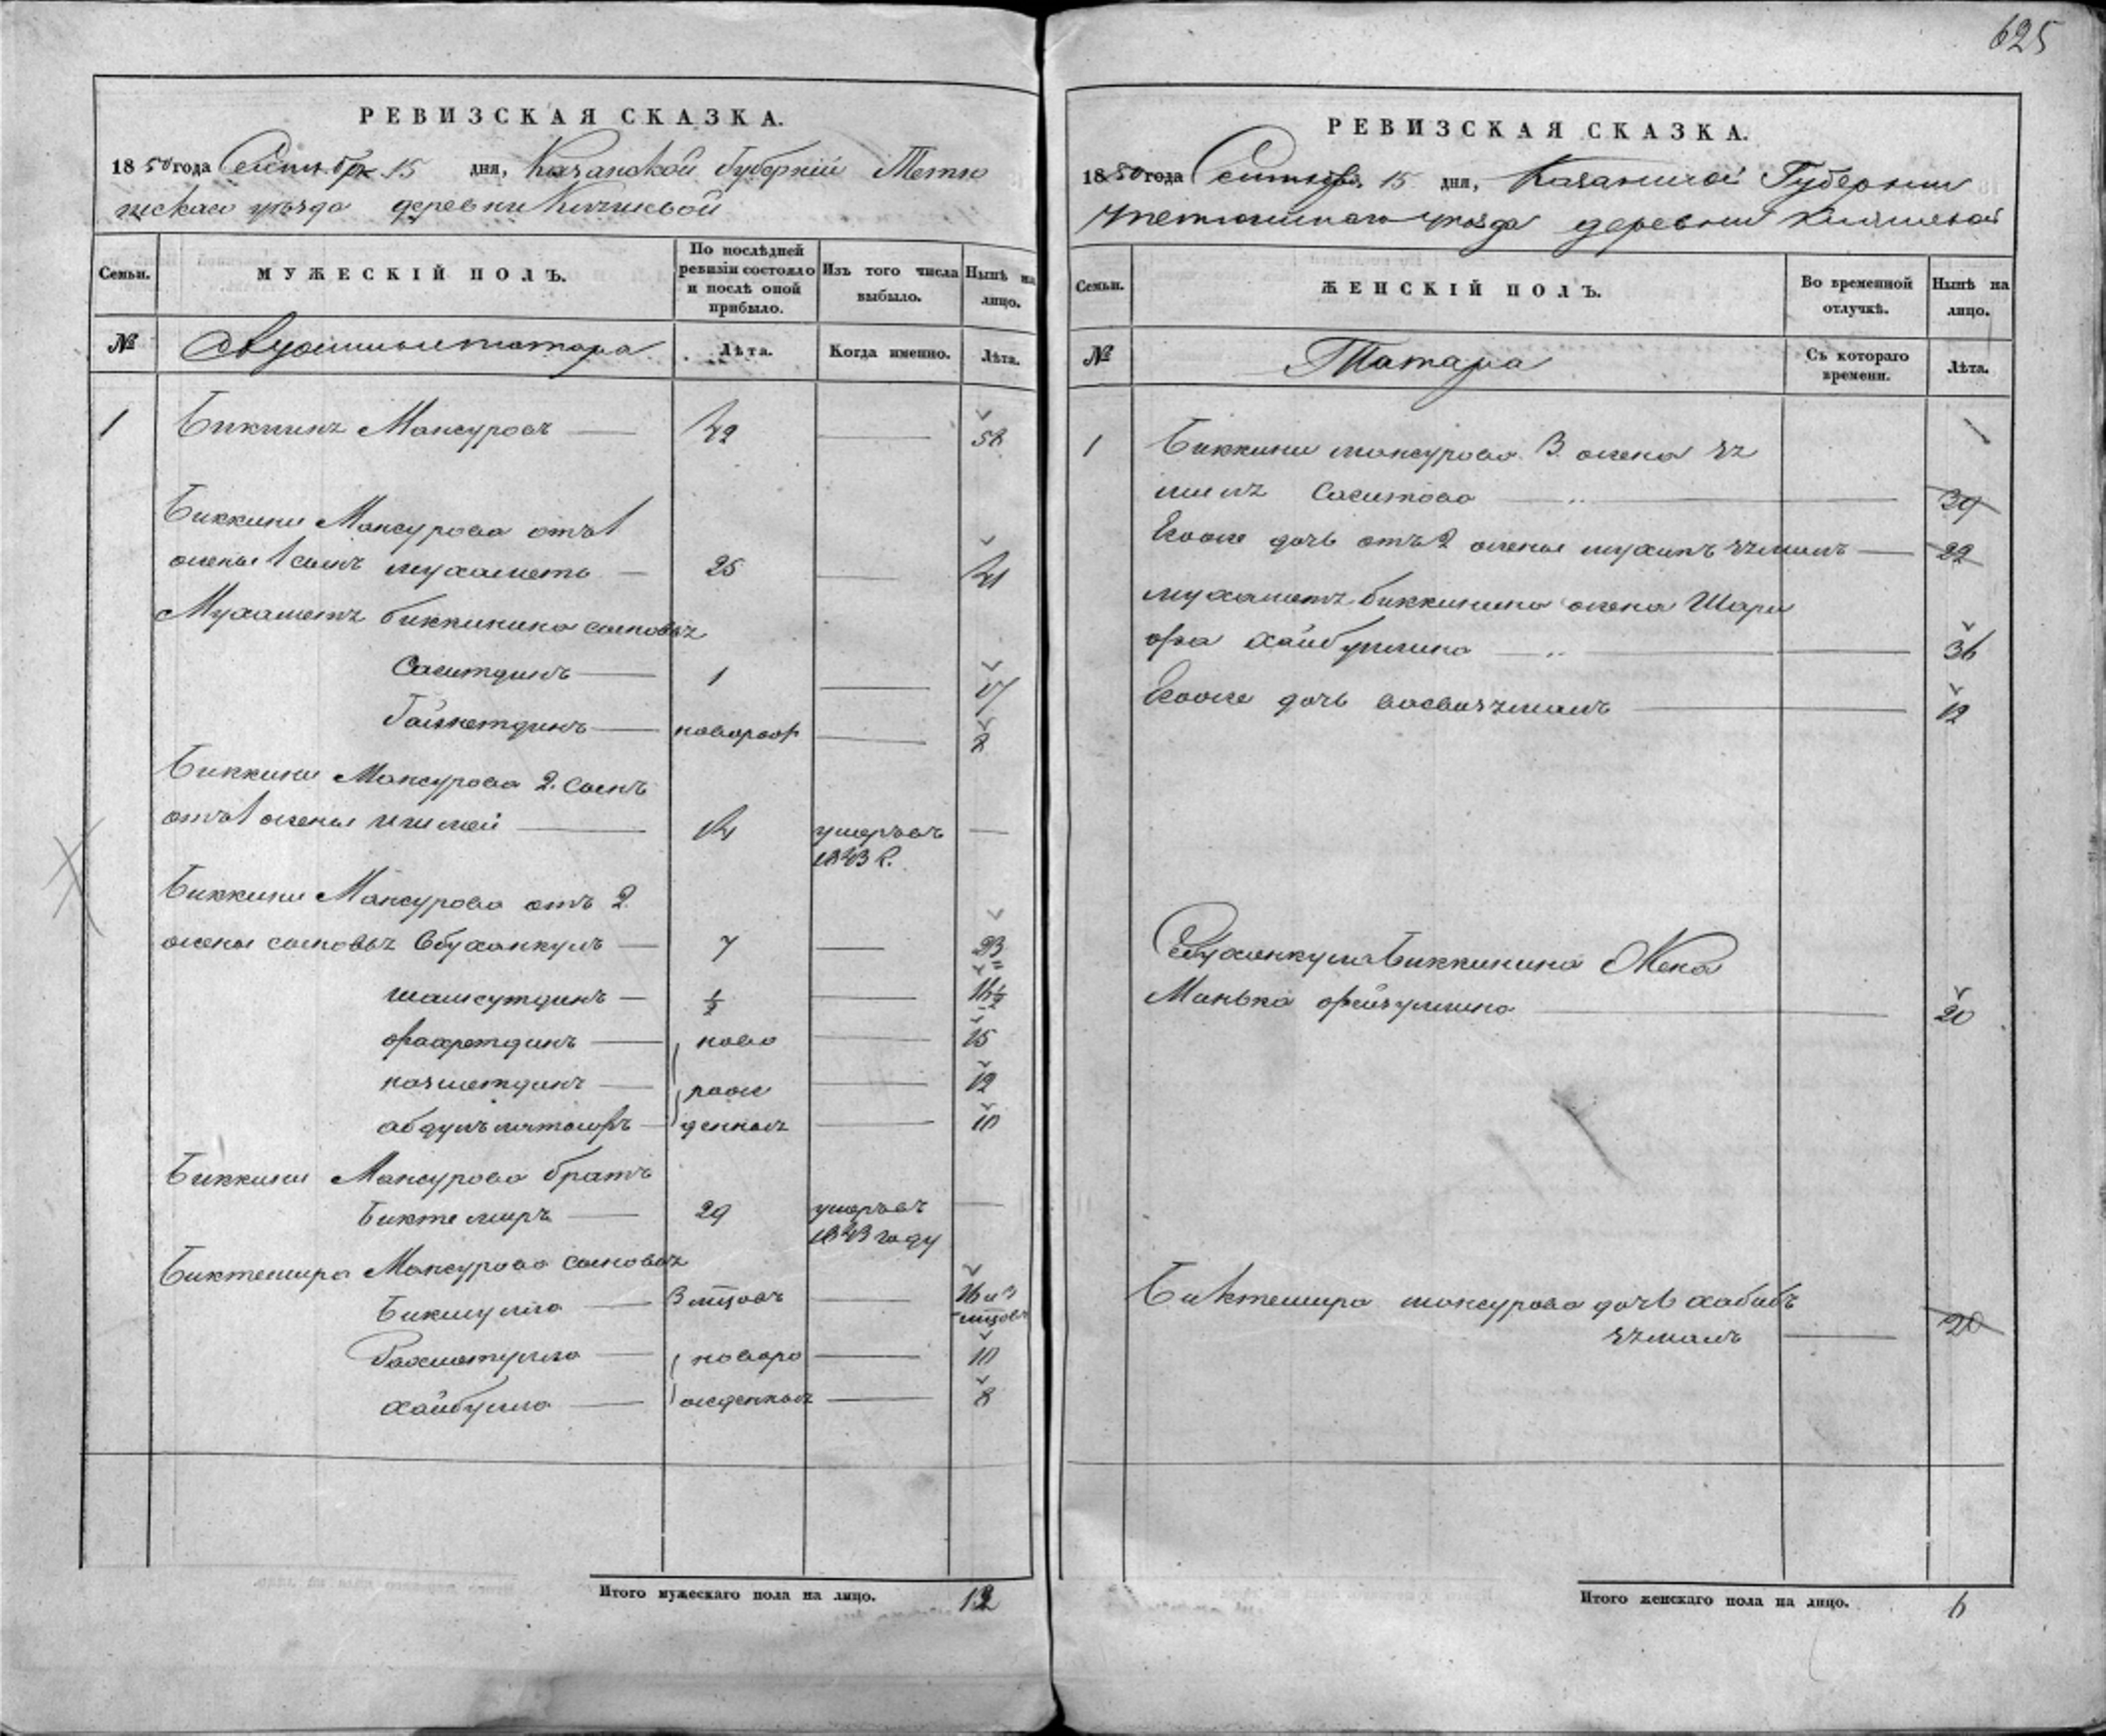 625
РЕВИЗСКАЯ СКАЗКА.
1850 года Сентября 15 дня, Казанской Губернiи Тетю
шскаго уѣзда деревни
Семьи. МУЖЕСКІЙ ПОЛЪ. По послѣдней ревизіи состояло и послѣ оной прибыло. Изъ того числа выбыло. Нынѣ на лицо.
№ татара Лѣта. Когда именно. Лѣта.
1 Биккинъ Мансуровъ — 42 — 58
Биккини Мансурова отъ 1
жены 1 сынъ мухаметъ — 25 — 41
Мухаметъ биккинина сыновья
Саситдинъ — 1 — 17
Гайнетдинъ — новорож — 8
Биккини Мансурова 2. сынъ
отъ 1 жены — 14 умеръ въ —
1843 г.
Биккини Мансурова отъ 2
жены сыновья Абуханкулъ — 7 — 23
шамсутдинъ — ½ — 16½
фахретдинъ — ново — 15
назметдинъ — рож — 12
абдулъ — денныя — 10
Биккини Мансурова братъ
Биктемиръ — 29 умеръ въ —
1843 году
Биктемира Мансурова сыновья
Бикмулла — 3 мцовъ — 16 и 3
мцовъ
Рахматулла — новоро — 10
хайбулла — жденныя — 8
Итого мужескаго пола на лицо. 12
РЕВИЗСКАЯ СКАЗКА.
1850 года Сентября 15 дня, Казанской Губернии
тетюшскаго уѣзда деревни
Семьи. ЖЕНСКІЙ ПОЛЪ. Во временной отлучкѣ. Нынѣ на лицо.
№ Татара Съ котораго времени. Лѣта.
1 Биккини мансурова 3. жена
Саситова — 39
Егоже дочь отъ 2 жены — 22
мухаметъ биккинина жена Шари
фа хайбуллина — 36
Егоже дочь — 12
Абуханкула Биккинина Жена
Манька фейзуллина — 20
Биктемира мансурова дочь хабибъ
земалъ — 20
Итого женскаго пола на лицо. 6